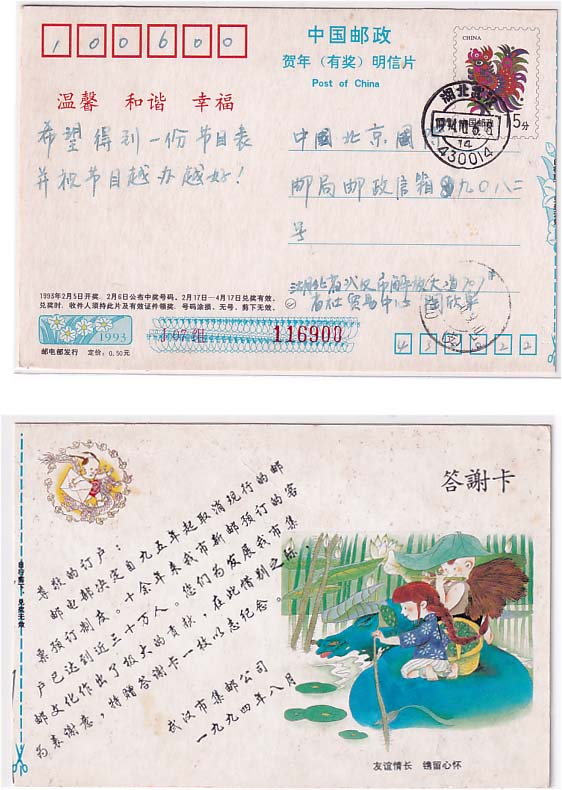 100600
中国邮政
贺年（有奖）明信片
Post of China
CHINA
15分
中国邮政
温馨 和谐 幸福
希望得到一份节目表
并祝节目越办越好！
中國北京國
邮局邮政信箱九〇八二
号
湖北武
14
430014
1993年2月5日开奖，2月6日公布中奖号码，2月17日—4月17日兑奖有效。
兑奖时，收件人须持此片及有效证件领奖，号码涂损、无号、剪下无效。
1993
J 07组
116908
邮电部发行 定价：0.50元
430022
答謝卡
尊敬的订户：
邮电部决定自九五年起取消现行的邮
票预订制度。十余年来我市新邮预订的客
户已达到近三十万人。您们为发展我市集
邮文化作出了极大的贡献，在此惜别之际，
为表谢意，特赠答谢卡一枚以志纪念。
武汉市集邮公司
一九九四年八月
友谊情长 镌留心怀
自行剪下，兑奖无效